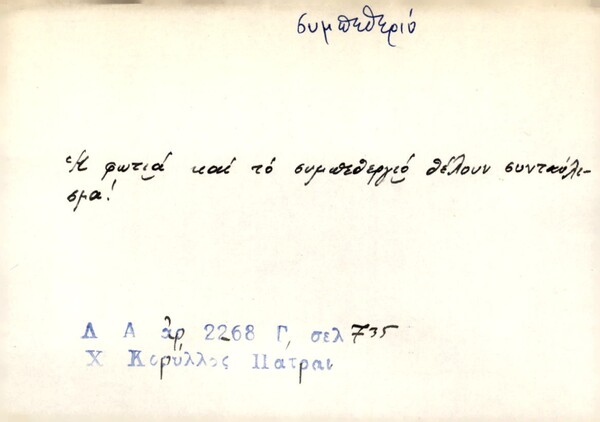 συμπεθεριό
Ἡ φωτιά καί τό συμπεθεργιό θέλουν συνταύλι-
σμα!
Λ Α ἀρ 2268 Γ, σελ 735
Χ Κορύλλος Πάτραι